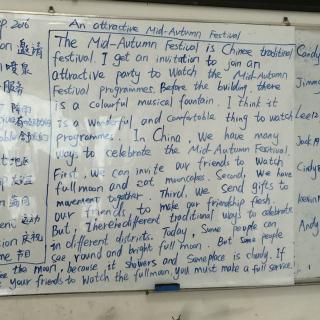 SEP 2016
An attractive Mid-Autumn Festival
邀请
喷泉
服务
降雨
地区
满月
运动
庆祝
节目
The Mid-Autumn Festival is Chinese traditional
festival. I get an invitation to join an
attractive party to watch the Mid-Autumn
Festival programmes. Before the building, there
is a colourful musical fountain. I think it
Is a wonderful and comfortable thing to watch
programmes. In China, we have many
ways to celebrate the Mid-Autumn Festival.
First, we can invite our friends to watch
full moon and eat mooncakes. Second, we have
movement together. Third, we send gifts to
our friends to make our friendship fresh.
But, There're different traditional ways to celebrate
in different districts. Today, Some people can
see round and bright full moon. But some people
see the moon, because it showers and Someplace is cloudy. If
your friends to watch the fullmoon, you must make a full service.
Candy
Jimmy
Leo
Jack
Cindy
Kevin
Andy